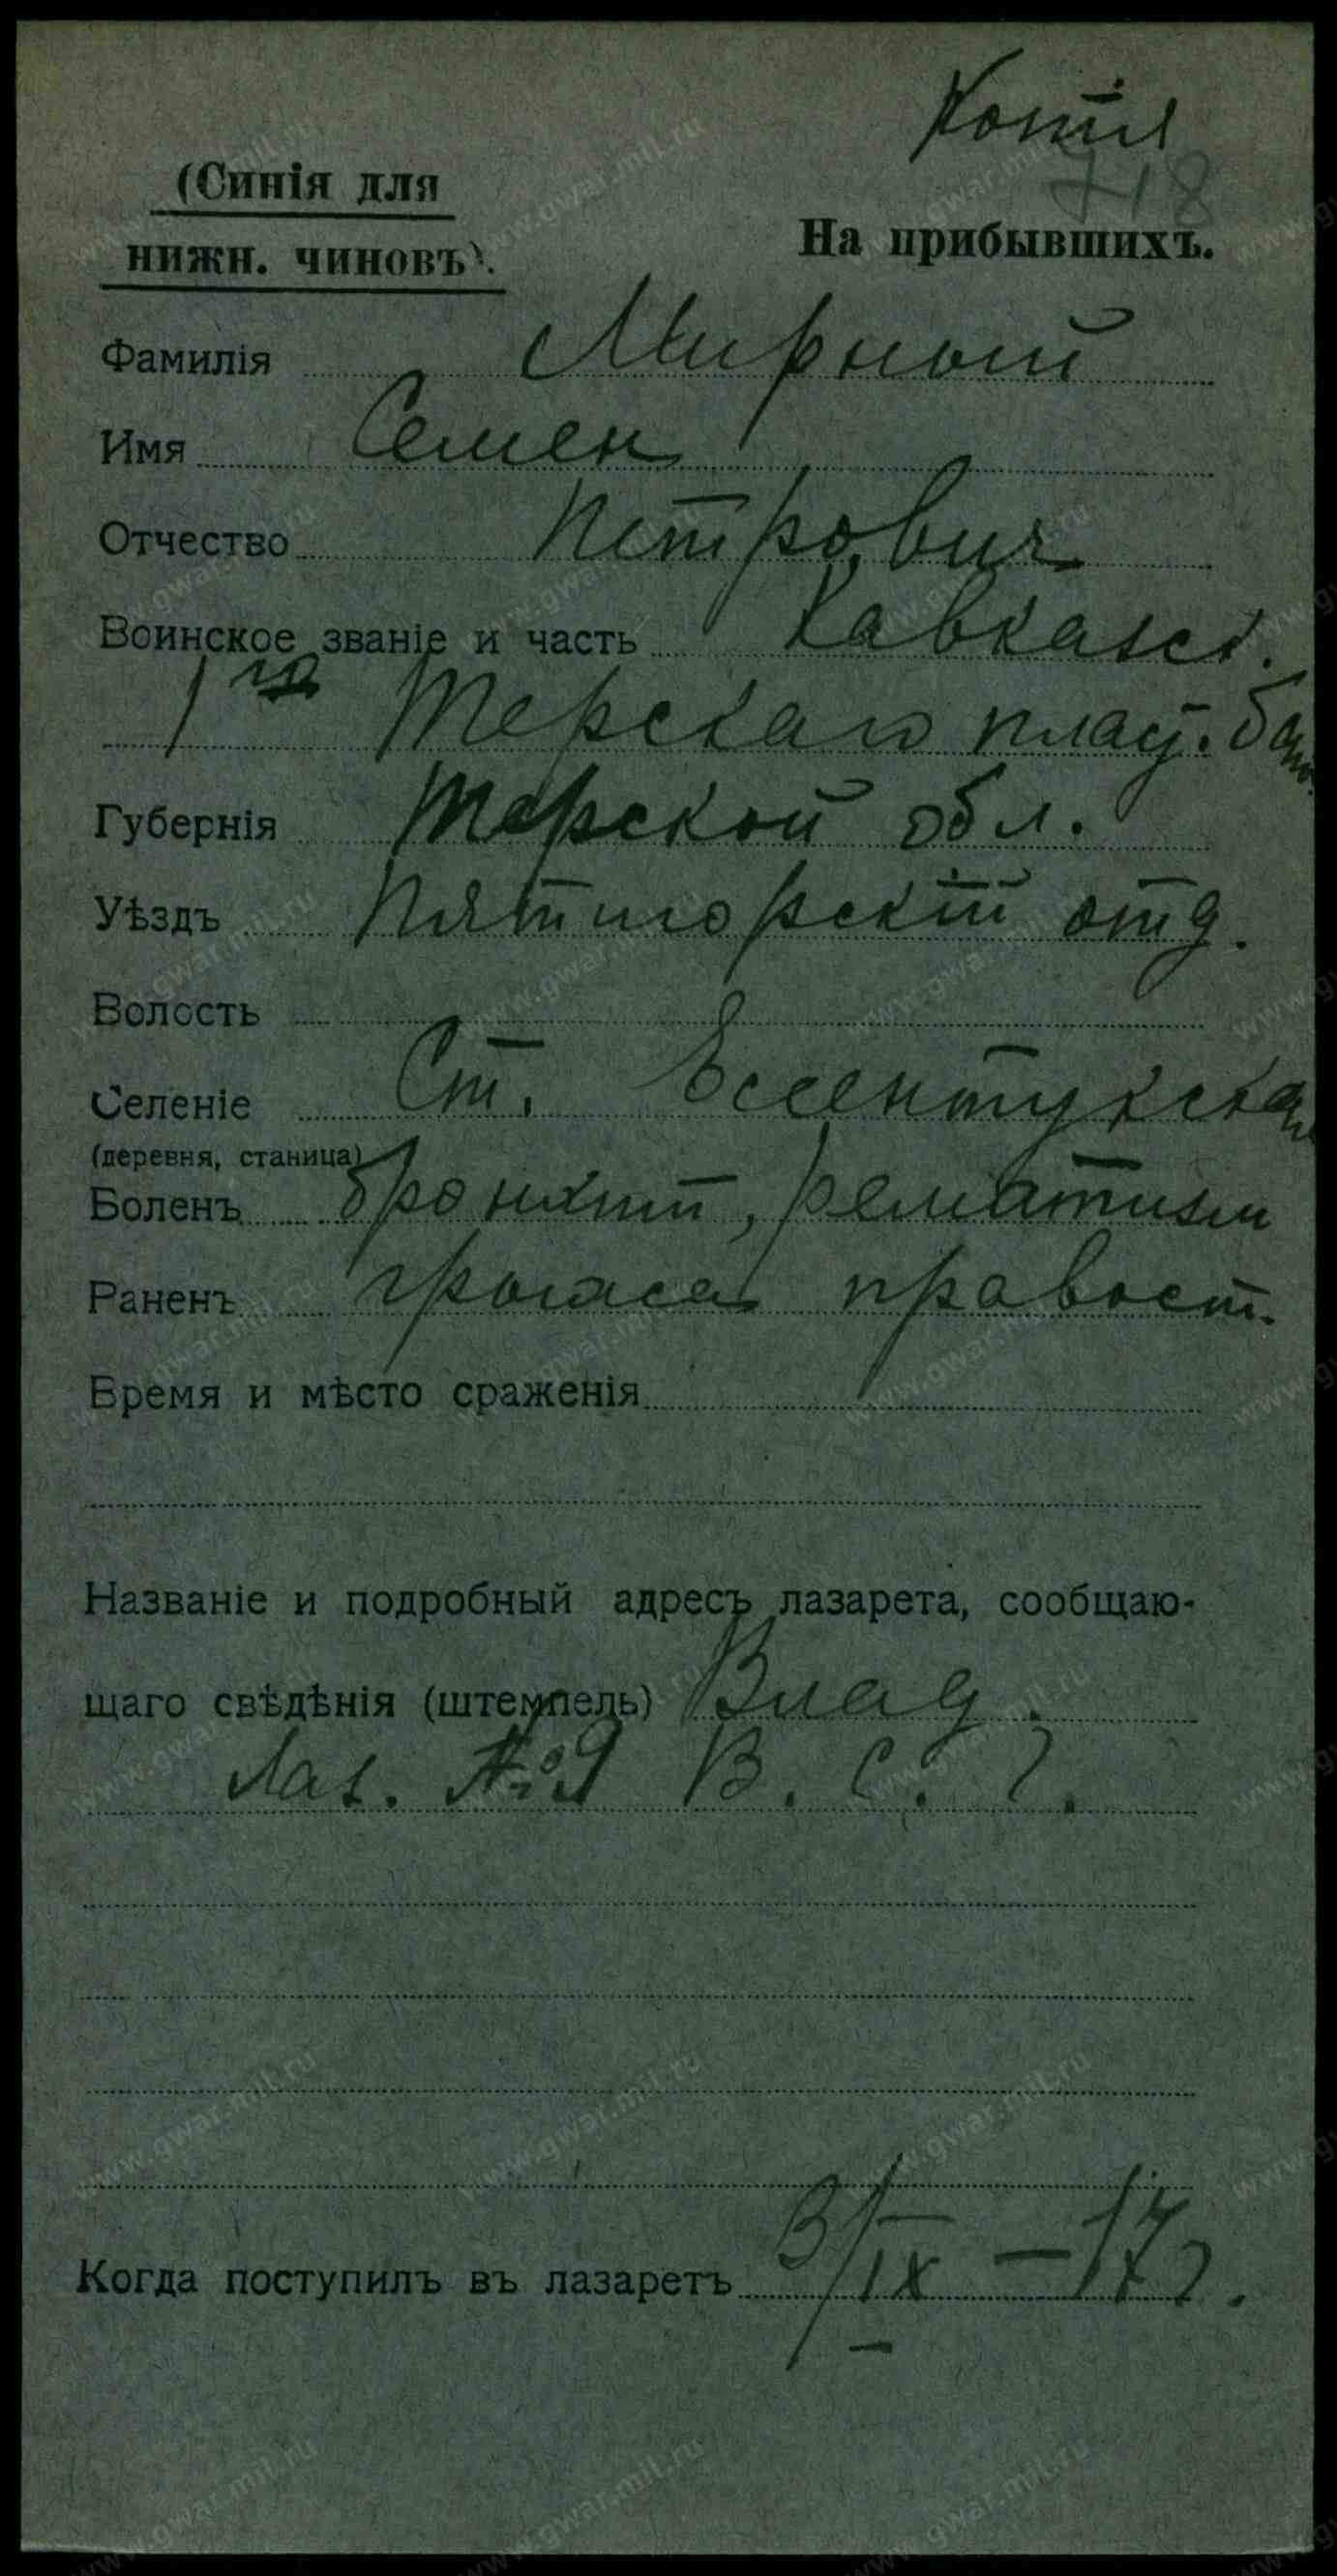 Копія
718
(Синія для
нижн. чиновъ).
На прибывшихъ.
Фамилія Мирный
Имя Семен
Отчество Петрович
Воинское званіе и часть Кавказск.
1го Терскаго плас. бат.
Губернія Терской обл.
Уѣздъ Пятигорскій отд.
Волость
Селеніе Ст. Ессентукская
(деревня, станица)
Боленъ бронхит, ревматизм
Раненъ грыжа правост.
Время и мѣсто сраженія
Названіе и подробный адресъ лазарета, сообщаю-
щаго свѣдѣнія (штемпель) Влад.
Лаз. №9 В. С. Г.
Когда поступилъ въ лазаретъ 3/IX – 17 г.
www.gwar.mil.ru